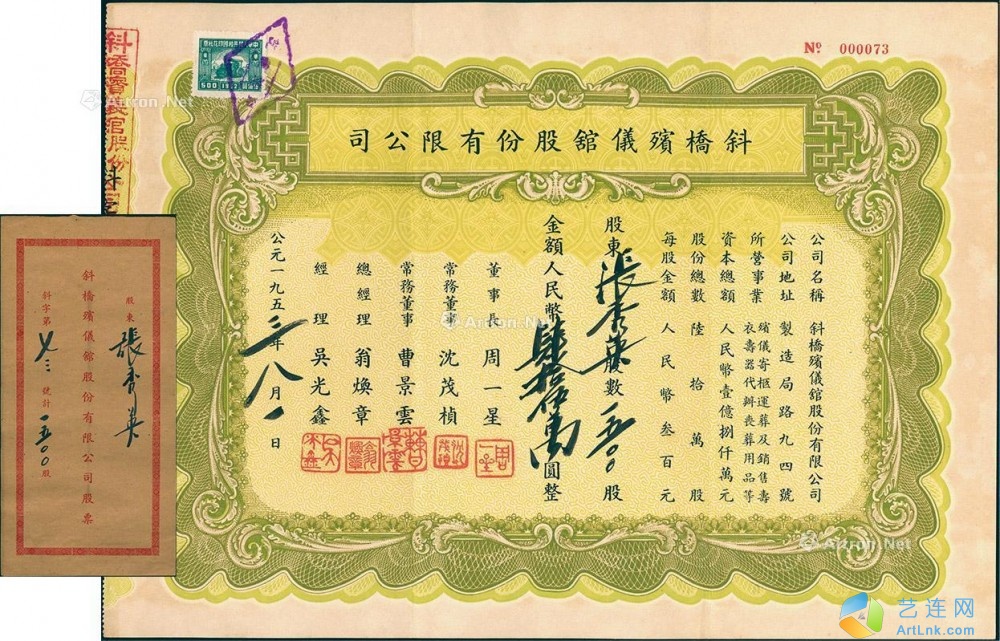 Nº 000073
斜橋殯儀舘股份有限公司
公司名稱 斜橋殯儀舘股份有限公司
公司地址 製造局路九四號
所營事業 殯儀寄柩運葬及銷售壽
衣壽器代辦喪葬用品等
資本總額 人民幣壹億捌仟萬元
股份總數 陸拾萬股
每股金額 人民幣叁百元
股東 張 股數 一五〇〇 股
金額人民幣肆拾伍萬圓整
董事長 周一星
常務董事 沈茂楨
常務董事 曹景雲
總經理 翁煥章
經理 吳光鑫
公元一九五三年八月一日
500
斜橋殯儀舘股份
股東 張
斜橋殯儀舘股份有限公司股票
斜字第 七三 號計 一五〇〇 股
Artron.Net
Artron.Net
Artron.Net
Artron.Net
艺连网
ArtLnk.com